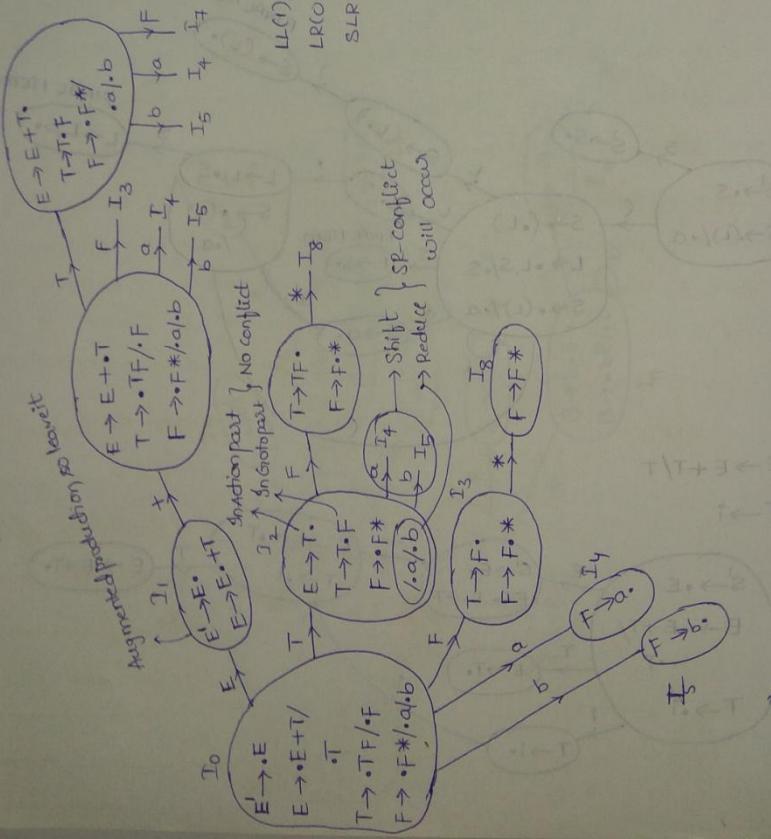 I0
E'→.E
E→.E+T/
.T
T→.TF/.F
F→.F*/.a/.b
E
Augmented production, so leave it
I1
E'→E.
E→E.+T
+
E→E+.T
T→.TF/.F
F→.F*/.a/.b
T
E→E+T.
T→T.F
F→.F*/
.a/.b
F
I7
a
I4
b
I5
F
I3
a
I4
b
I5
T
I2
E→T.
T→T.F
F→.F*
/.a/.b
In Action part
In Goto part
} No conflict
F
T→TF.
F→F.*
*
I8
a
I4
b
I5
→Shift
→Reduce
} SR-conflict
will occur
F
I3
T→F.
F→F.*
*
I8
F→F*
a
I4
F→a.
b
I5
F→b.
LL(1)
LR(0
SLR